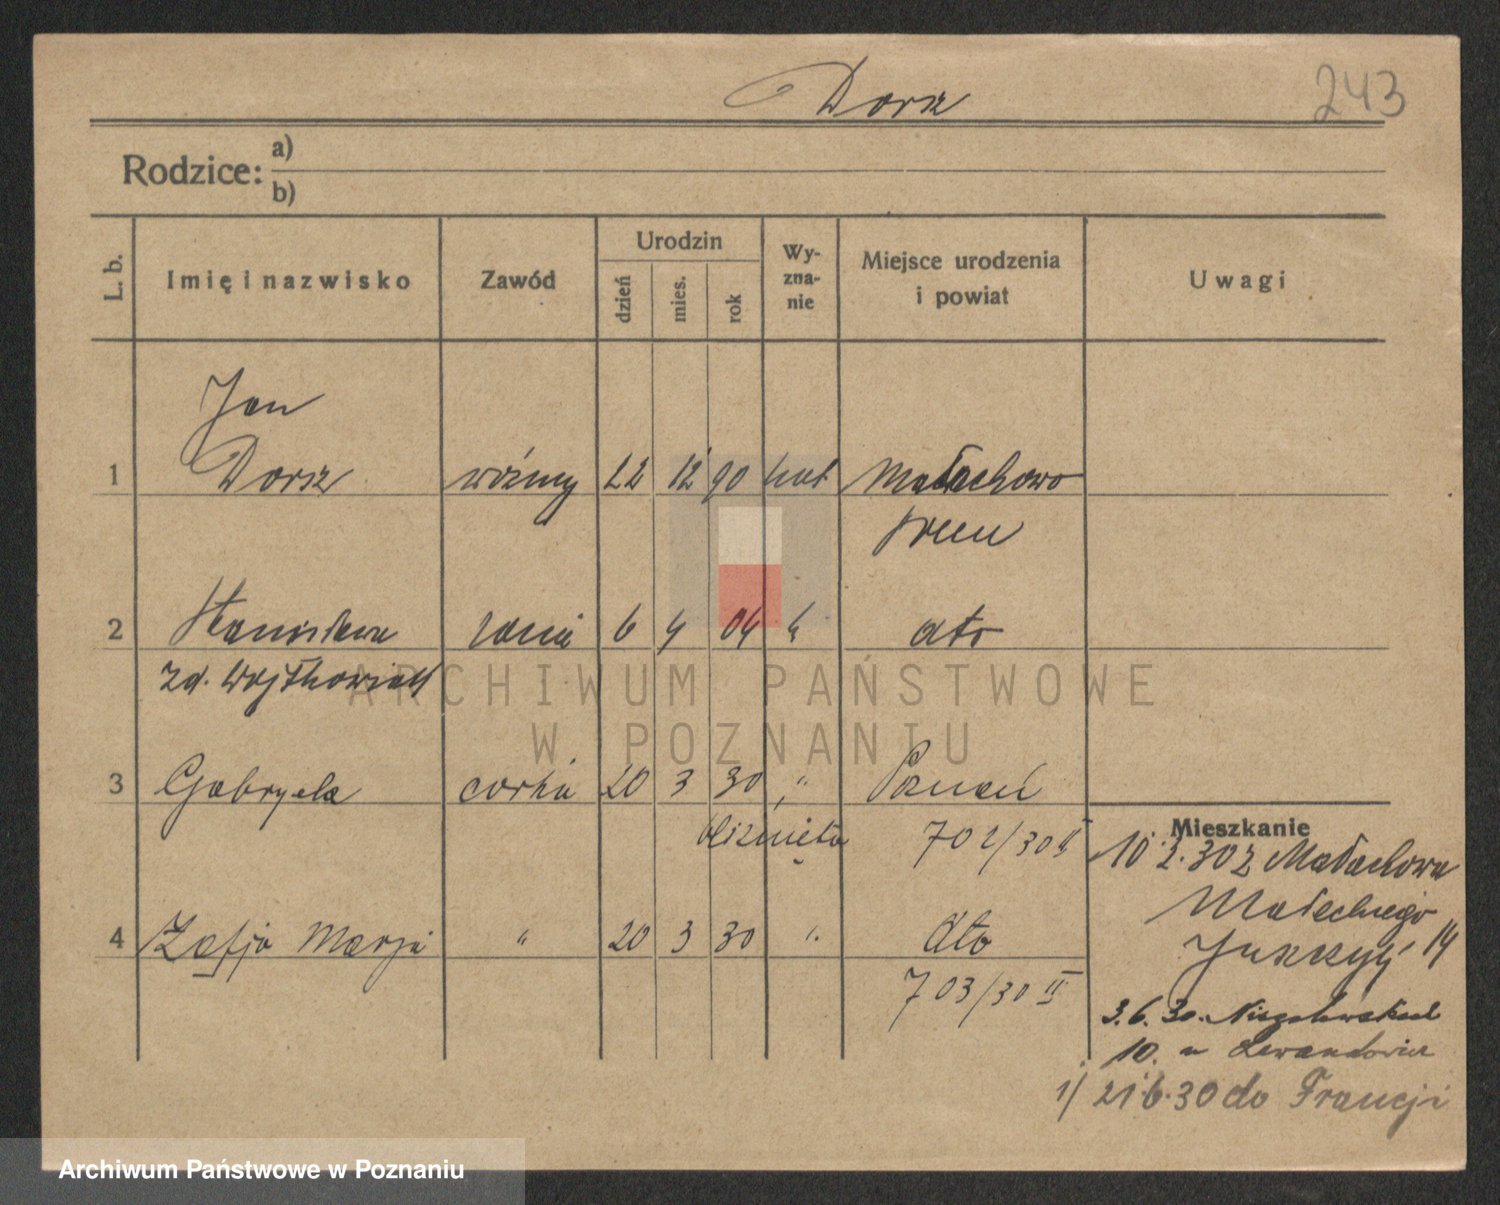 Dorsz
243
Rodzice: a)
b)
L. b.
Imię i nazwisko
Zawód
Urodzin
dzień
mies.
rok
Wy-
zna-
nie
Miejsce urodzenia
i powiat
Uwagi
Jan
1 Dorsz woźny 22 12 90 kat Małachowo
śrem
2 Stanisława żona 6 4 04 " dto
zd. Wojtkowiak
3 Gabryela córka 20 3 30 " Poznań
bliźnięta 702/30 II
4 Zofja Marja " 20 3 30 " dto
703/30 II
Mieszkanie
10.2.30 z Małachowa
Małeckiego
14
3.6.30.
10. u Lewandowicz
1/ 21.6.30 do Francji
ARCHIWUM PAŃSTWOWE
W POZNANIU
Archiwum Państwowe w Poznaniu